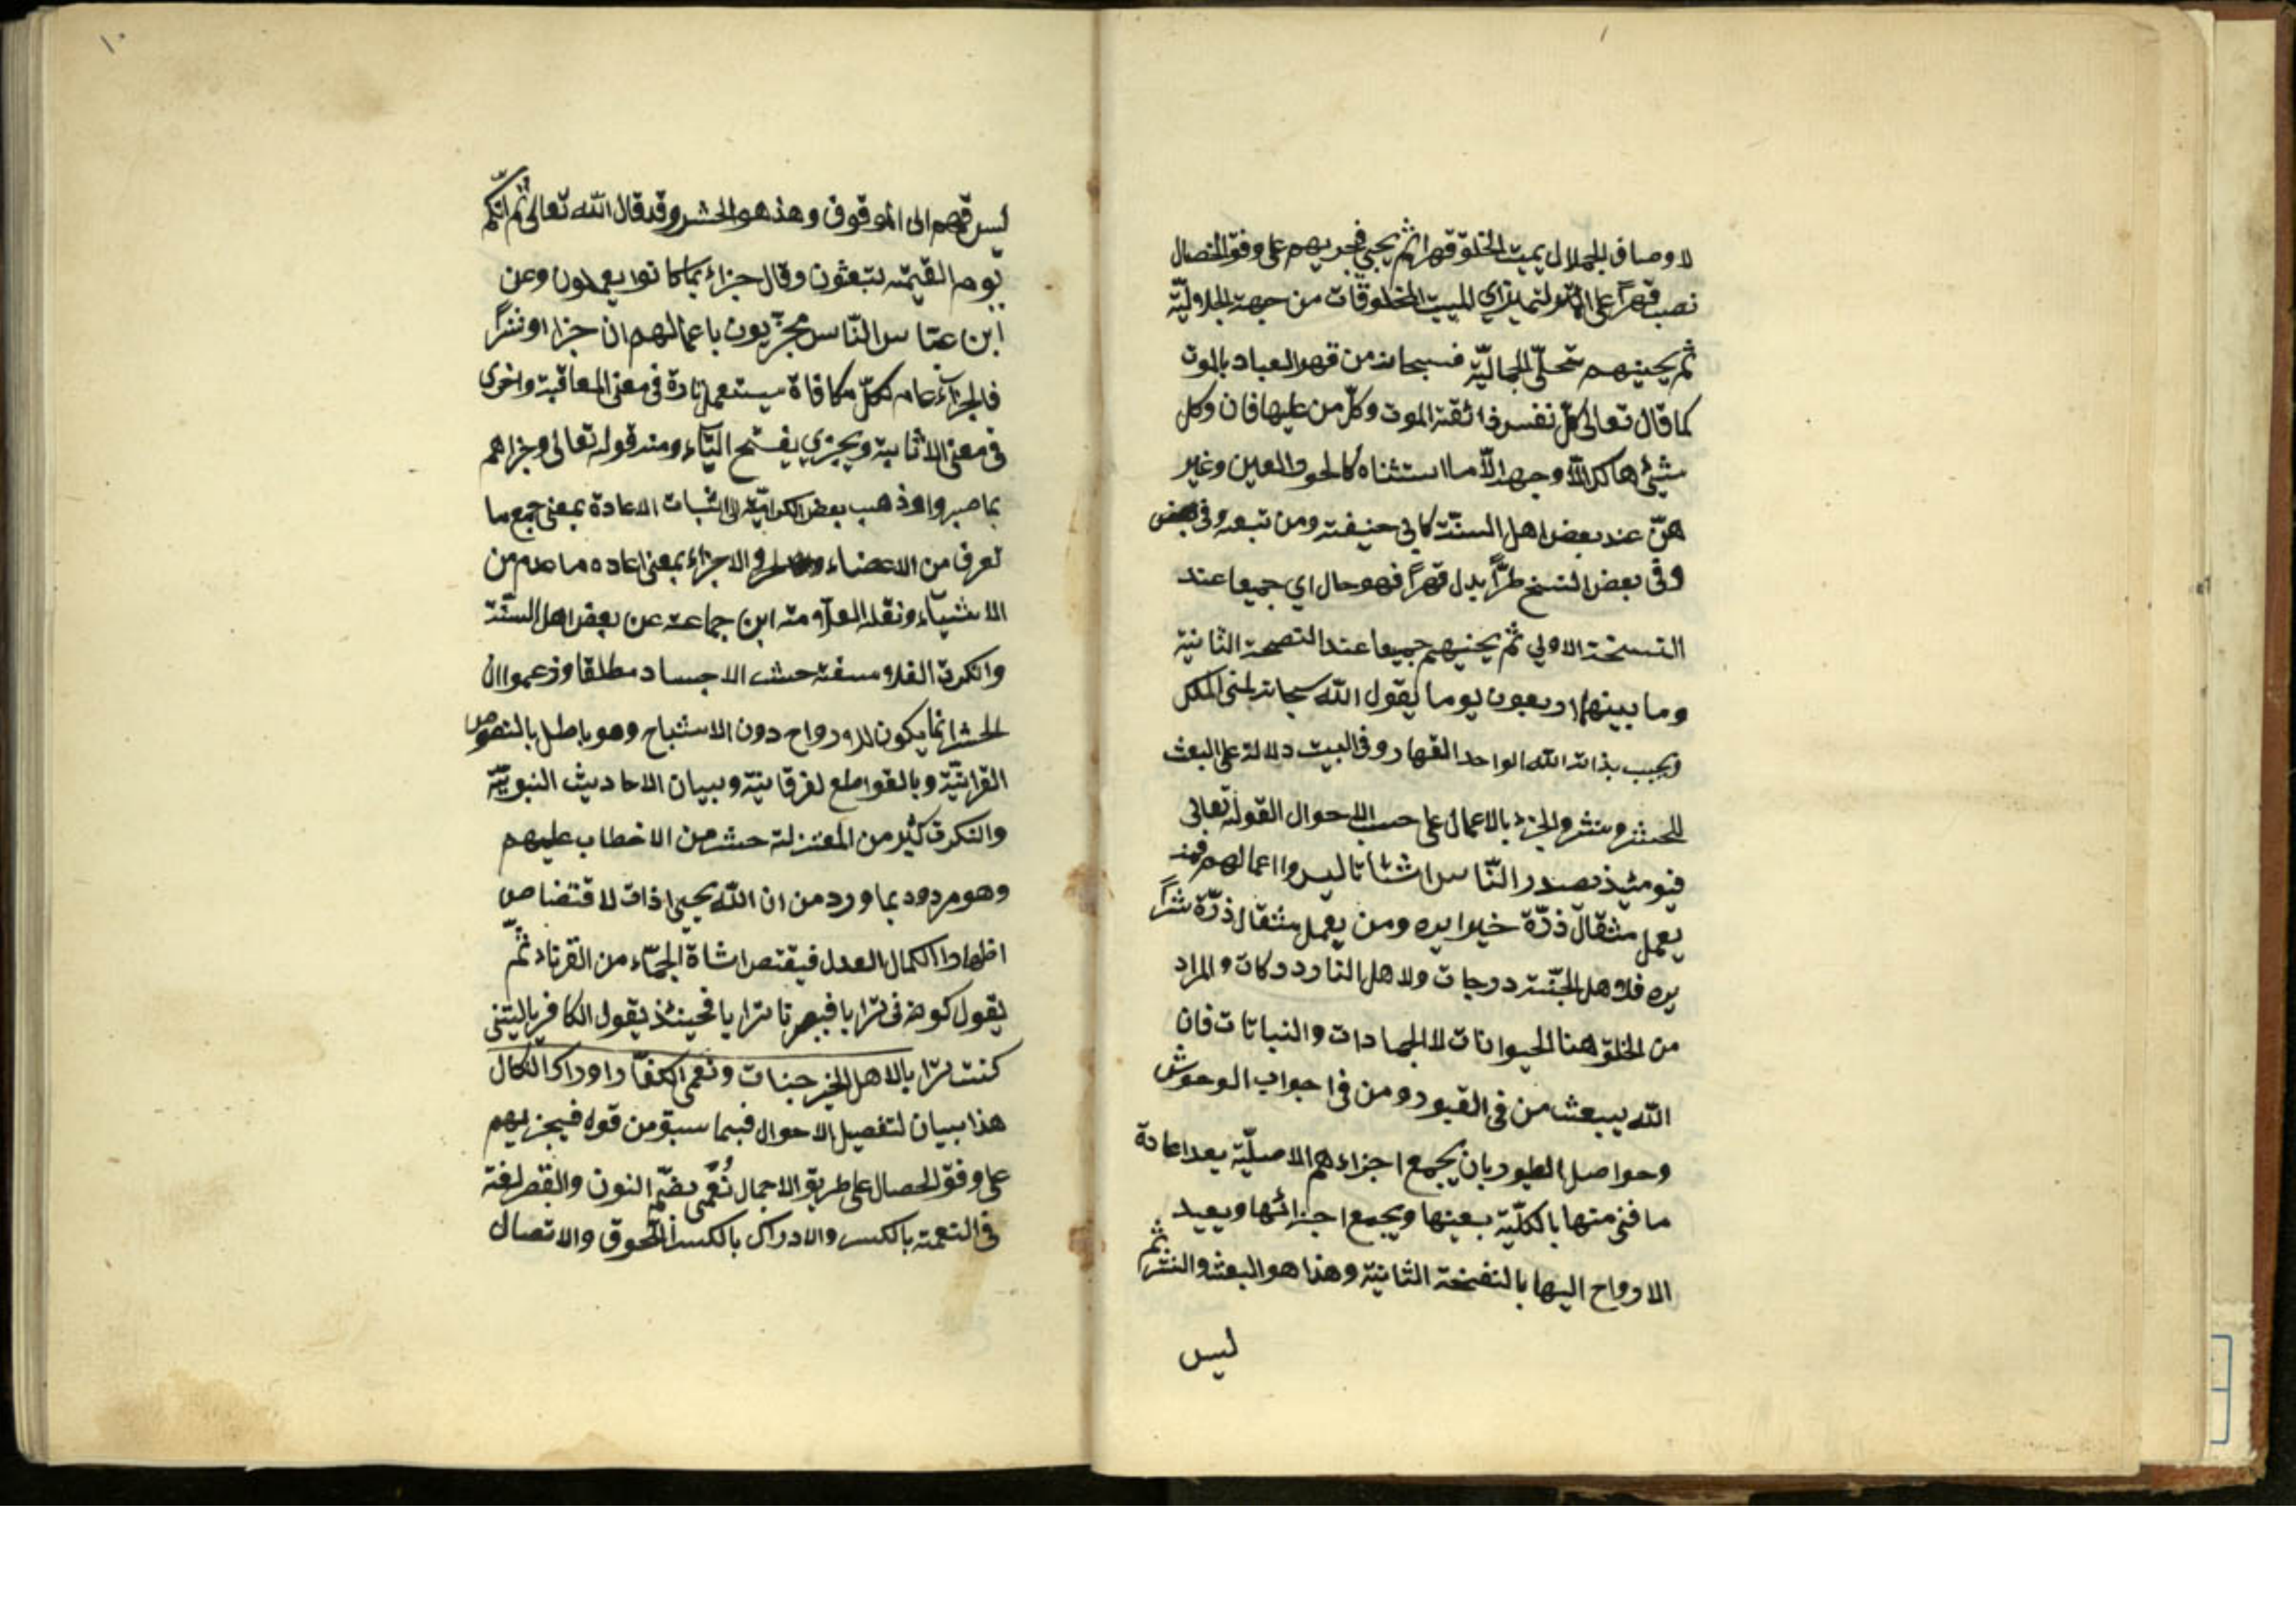 لاوصاف الجلال يميت الخلق قهرا ثم يحيي فيجزيهم على وفق الخصال
نصب قهراً على التميز اي المميت المخلوقات من جهة الجلاليّة
ثم يحييهم بتجلّي الجماليّة فسبحانه من قهر العباد بالموت
كما قال تعالى كلّ نفس ذائقة الموت وكلّ من عليها فان وكل
شيئ هالك الاّ وجهه الاّ ما استثناه كالحور العين وغير
هنّ عند بعض اهل السنّة كابي حنيفة ومن تبعه وفي بعض
وفي بعض النسخ طرّاً بدل قهراً فهو حال اي جميعا عند
النسخة الاولي ثم يحييهم جميعا عند النصحة الثانية
وما بينهما اربعون يوما يقول الله سبحانه لمن الملك
ويجيب بذاته الله الواحد القهار وفي البيت دلالة على البعث
للحشر ونشر والجزء بالاعمال على حسب الاحوال القوله تعالى
فيومئيذ يصدر النّاس اشتاتا ليروا اعمالهم فمن
يعمل مثقال ذرّة خيرا يره ومن يعمل مثقال ذرّة شراً
يره فلاهل الجنّة درجات ولاهل النار دركات والمراد
من الخلق هنا الحيوانات لا الجمادات والنباتات فان
الله يبعث من في القبور ومن في اجواب الوحوش
وحواصل الطيور بان يجمع اجزاءهم الاصليّة بعد اعادة
ما فني منها بالكليّة بعينها ويجمع اجزائها ويعيد
الارواح اليها بالنفخة الثانية وهذا هو البعث والنشر ثم
ليس
ليس قهم الى الموقوف وهذ هو الحشر وقد قال الله تعالى ثم انّكم
يوم القيمة تبعثون وقال جزاء بما كانوا يعملون وعن
ابن عبّاس النّاس مجزّيون باعمالهم ان خيرا او شراً
فالجزاء عام لكلّ مكافاة يستعمل تارة في معنى المعاقبة واخرى
في معنى الاثابة ويجزي بفتح اليّاء ومنه قوله تعالى وجزاهم
بما صبروا وذهب بعض الكراميّة الى اثبات الاعادة بمعنى جمع ما
تعرف من الاعضاء والاجزاء بمعنى اعاده ما عدم من
الاشياء ونقله العلاّمة ابن جماعة عن بعض اهل السنّة
وانكرت الفلاسفة حشر الاجساد مطلقا وزعموا ان
الحشر انما يكون للارواح دون الاشباح وهو باطل بالنصوص
القرانيّة وبالقواطع لفرقانيّة وببيان الاحاديث النبويّة
وانكرت كثير من المعتزلة حشر من الاخطاب عليهم
وهو مردود بما ورد من ان الله يحيي اذات لاقتضاص
اظهارا الكمال العدل فيقتص اشاة الجمّاء من القرناد ثمّ
يقول كونه في ترابا فيصرنا ترابا فحينئذ يقول الكافر ياليتني
كنت ترابا لاهل الخير جنات ونعمى الكفّار ادراك النكال
هذا بيان لتفصيل الاحوال فيما سبق من قوله فيجزيهم
على وفق الحصال على طريق الاجمال نُعمى بضمّ النون والقصر لغة
في النعمة بالكسر والادراك بالكسر اللّحوق والاتصال